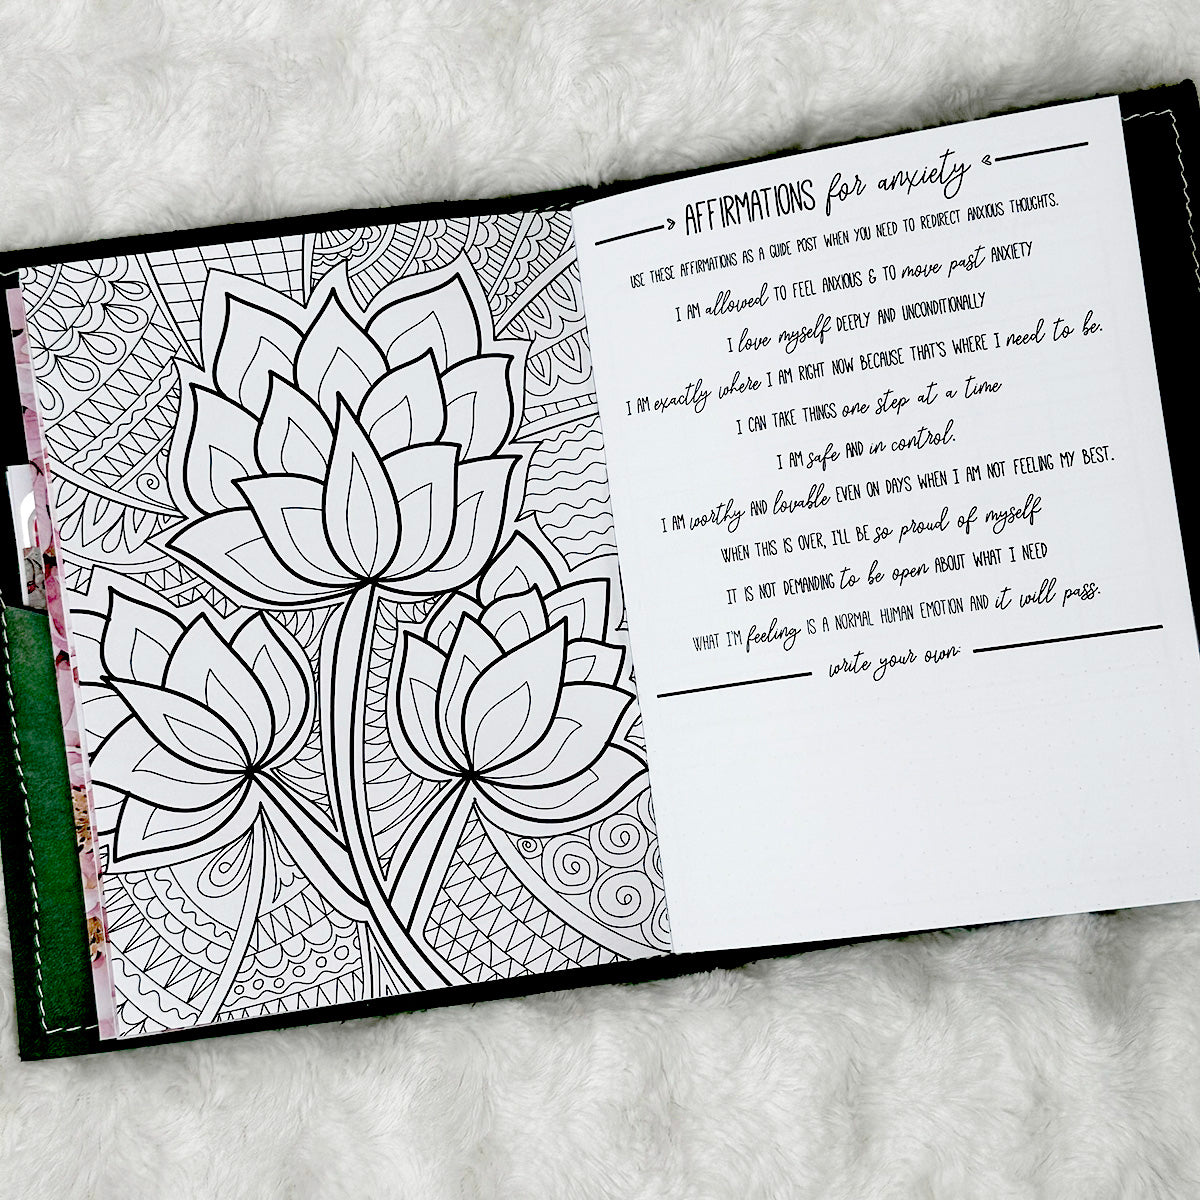 AFFIRMATIONS for anxiety
USE THESE AFFIRMATIONS AS A GUIDE POST WHEN YOU NEED TO REDIRECT ANXIOUS THOUGHTS.
I AM allowed TO FEEL ANXIOUS & TO move past ANXIETY
I love myself DEEPLY AND UNCONDITIONALLY
I AM exactly where I AM RIGHT NOW BECAUSE THAT'S WHERE I need to be.
I CAN TAKE THINGS one step at a time
I AM safe AND in control.
I AM worthy AND lovable EVEN ON DAYS WHEN I AM NOT FEELING MY BEST.
WHEN THIS IS OVER, I'LL BE so proud of myself
IT IS NOT DEMANDING to be open ABOUT WHAT I NEED
WHAT I'M feeling IS A NORMAL HUMAN EMOTION AND it will pass.
write your own: